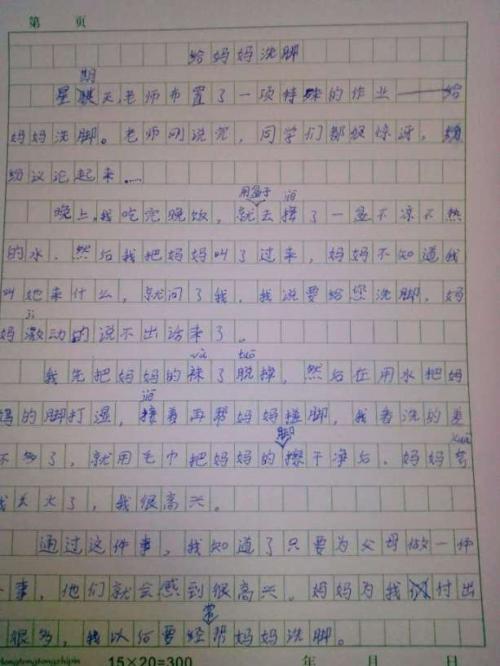 第 页
给妈妈洗脚
期
星天,老师布置了一项特殊的作业——给
妈妈洗脚。老师刚说完,同学们都很惊讶,纷
纷议论起来……
用盆子 jiē
晚上,我吃完晚饭,就去接了一盆不凉不热
的水,然后我把妈妈叫了过来,妈妈不知道我
叫她来什么,就问了我,我说要给您洗脚,妈
jī
妈激动的说不出话来了。
wà tuō
我先把妈妈的袜了脱掉,然后在用水把妈
jiē
妈的脚打湿,接着再帮妈妈搓脚,我看洗的差
脚
不多了,就用毛巾把妈妈的擦干净后,妈妈夸
kuā
我长大了,我很高兴。
通过这件事,我知道了只要为父母做一件
事,他们就会感到很高兴。妈妈为我付出
常
很多,我以后要经帮妈妈洗脚。
15×20=300 年 月 日